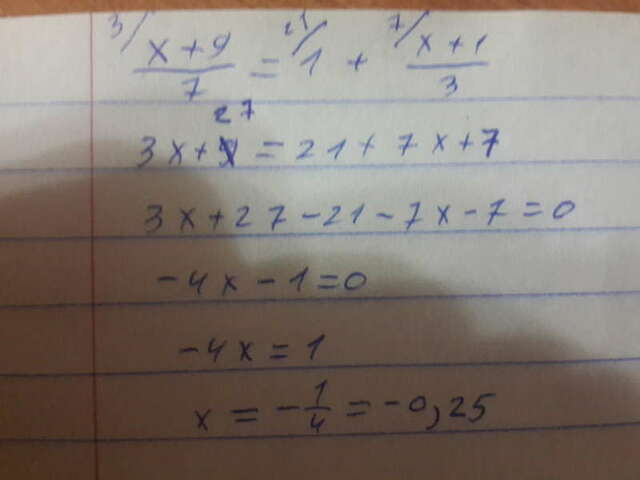 3/ x+9/7 = 21/ 1 + 7/ x+1/3
27
3x+9 = 21+7x+7
3x+27-21-7x-7=0
-4x-1=0
-4x=1
x = -1/4 = -0,25